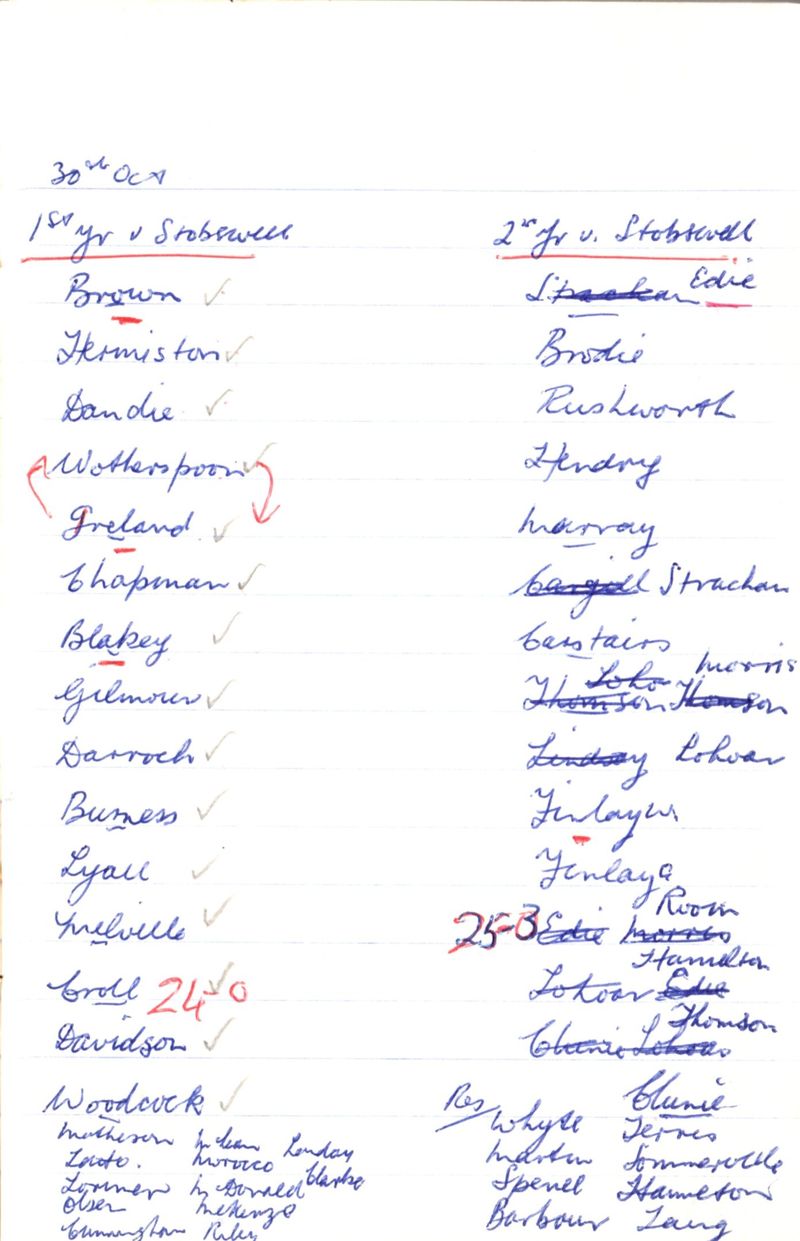 30th Oct
1st yr v Stobswell
Brown
Hermiston
Dandie
Wotherspoon
Ireland
Chapman
Blakey
Gilmour
Darroch
Burness
Lyall
Melville
Croll 24-0
Davidson
Woodcock
Matheson McLean Lindsay
Morocco Clarke
Lorimer McDonald
Olsen McKenzie
Cunningham Riley
2nd Yr v. Stobswell
Strachan Edie
Brodie
Rushworth
Hendry
Murray
Cargill Strachan
Carstairs
Morris
Thomson Thomson
Lindsay Lohoar
Finlay W.
Finlay G
Room
25-3 Edie Morris
Hamilton
Lohoar Edie
Thomson
Clunie Lohoar
Res Clunie
Whyte Ferris
Martin Sommerville
Hamilton
Barbour Laing